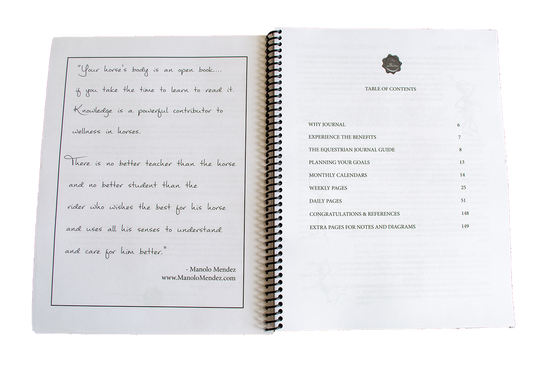 "Your horse's body is an open book....
if you take the time to learn to read it.
Knowledge is a powerful contributor to
wellness in horses.
There is no better teacher than the horse
and no better student than the
rider who wishes the best for his horse
and uses all his senses to understand
and care for him better."
- Manolo Mendez
www.ManoloMendez.com
TABLE OF CONTENTS
WHY JOURNAL 6
EXPERIENCE THE BENEFITS 7
THE EQUESTRIAN JOURNAL GUIDE 8
PLANNING YOUR GOALS 13
MONTHLY CALENDARS 14
WEEKLY PAGES 25
DAILY PAGES 51
CONGRATULATIONS & REFERENCES 148
EXTRA PAGES FOR NOTES AND DIAGRAMS 149